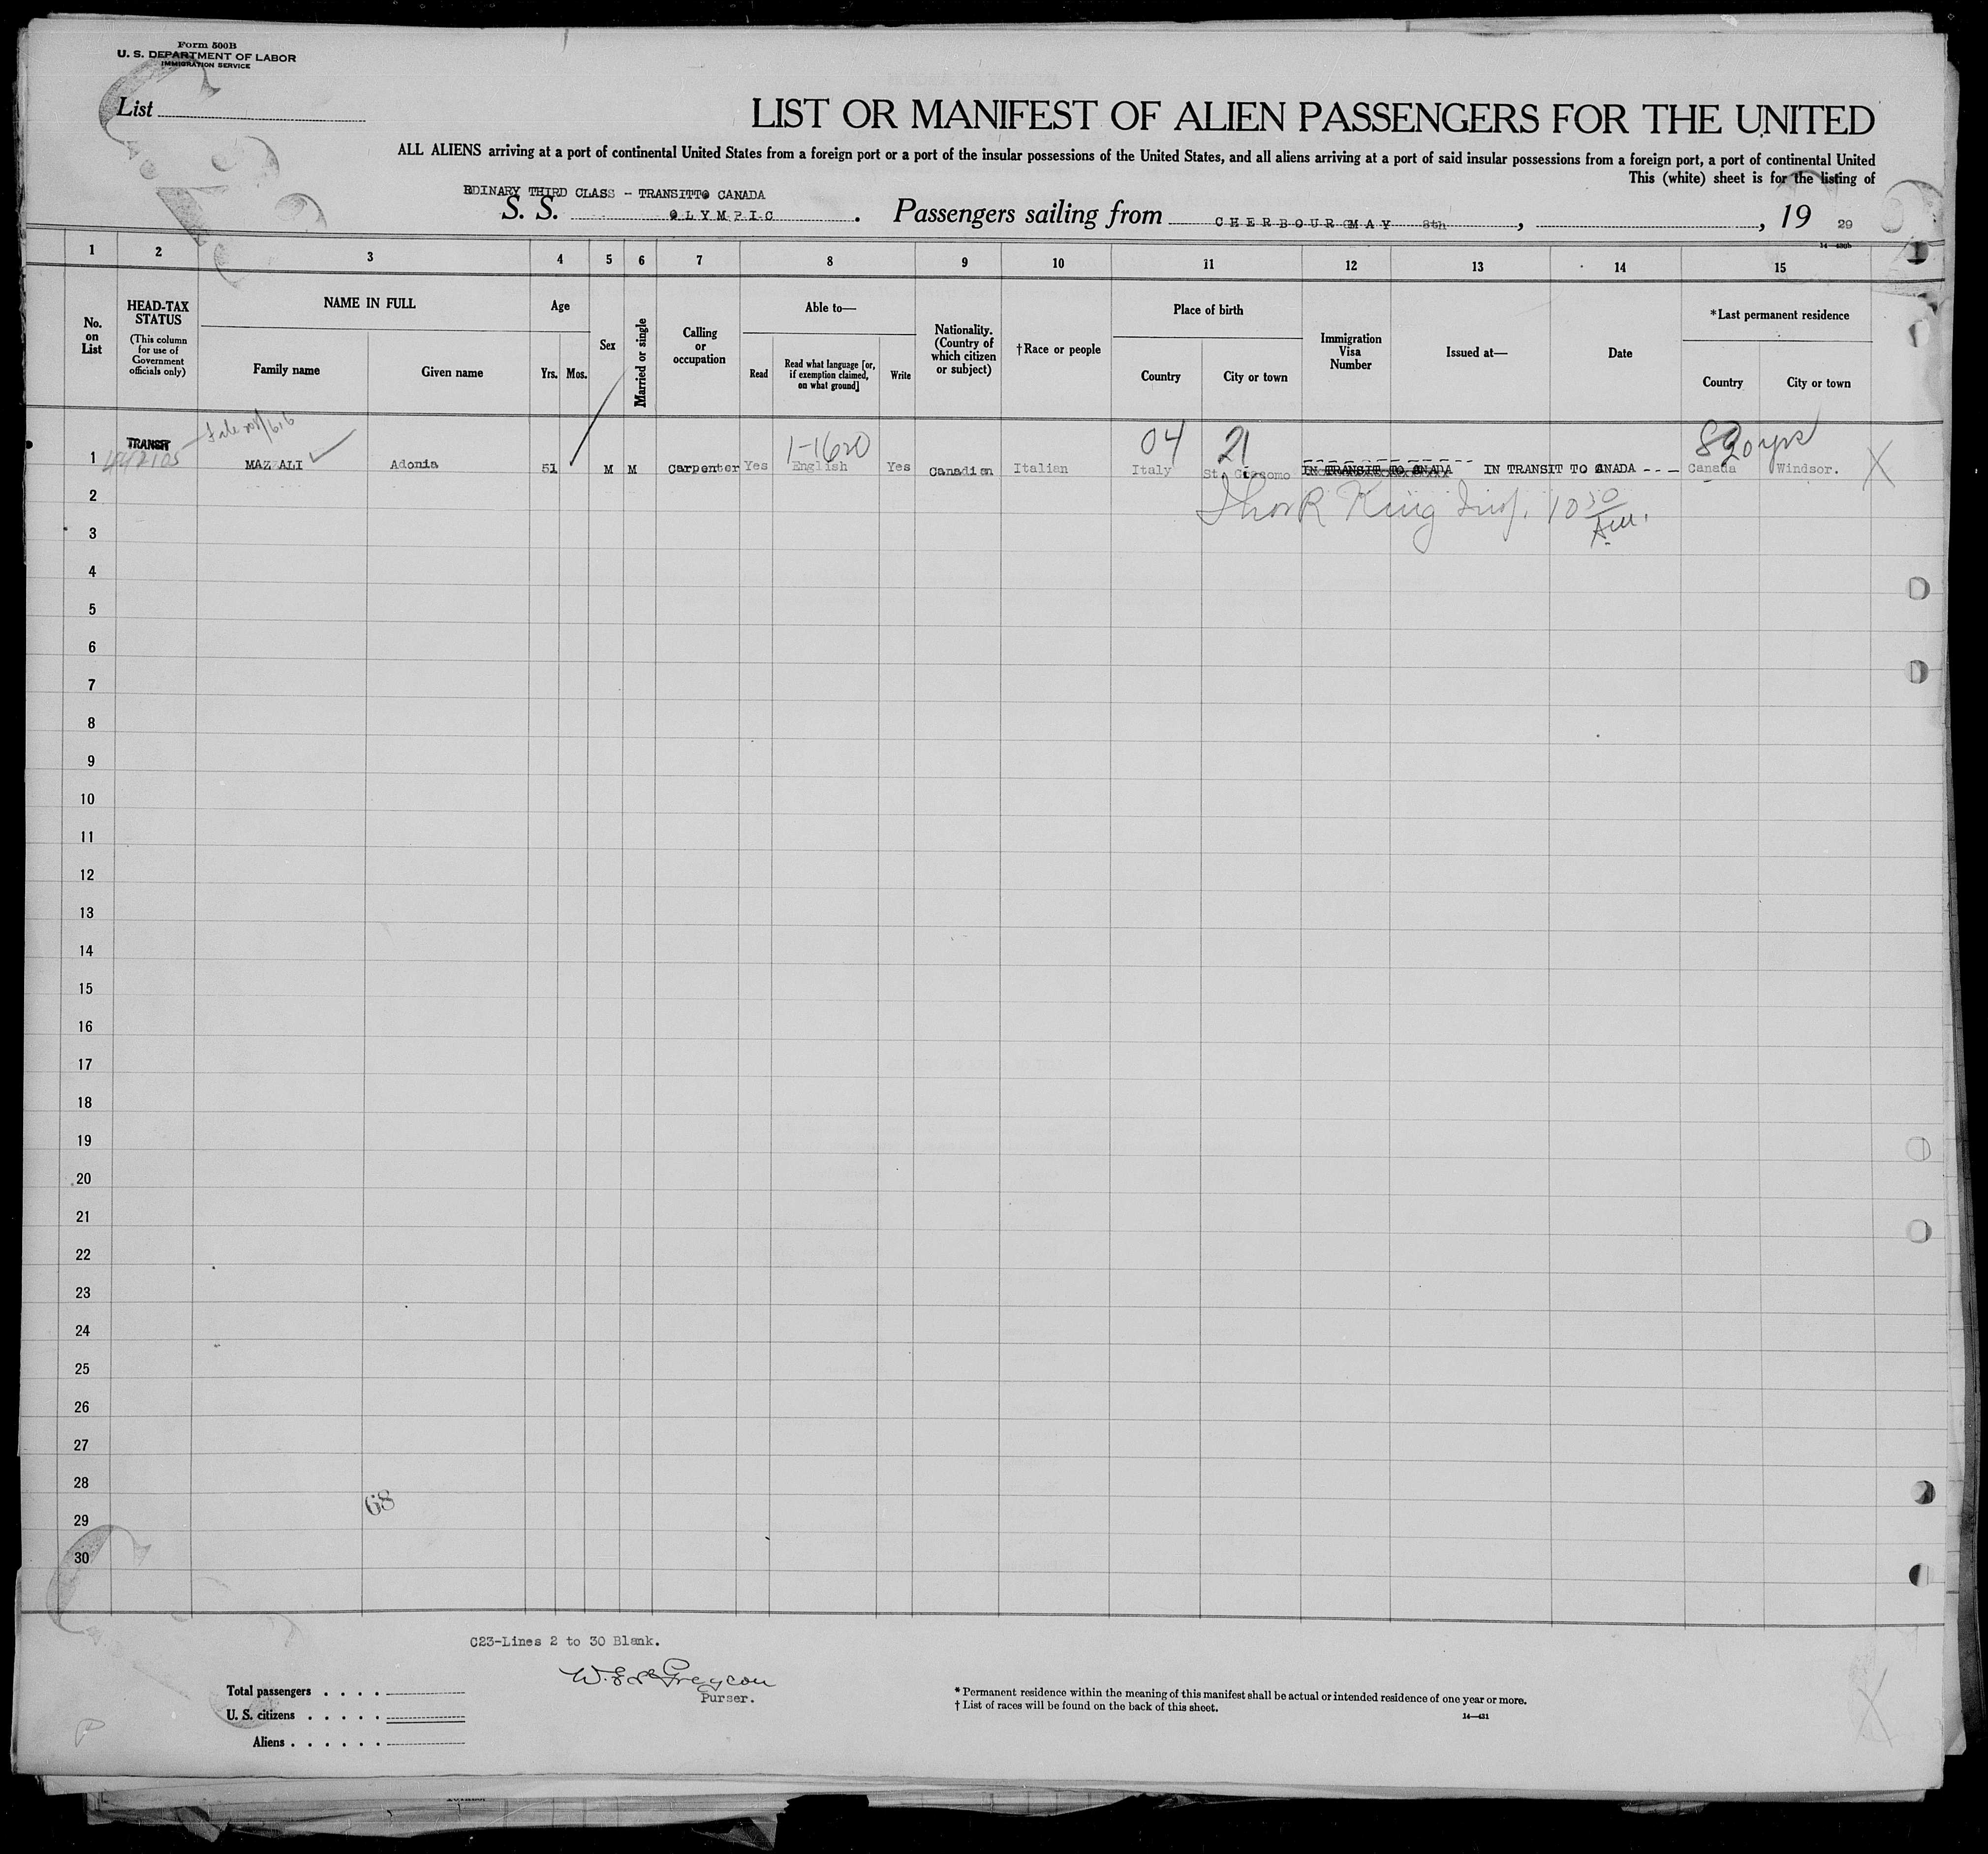 Form 500B
U. S. DEPARTMENT OF LABOR
IMMIGRATION SERVICE
List
LIST OR MANIFEST OF ALIEN PASSENGERS FOR THE UNITED
ALL ALIENS arriving at a port of continental United States from a foreign port or a port of the insular possessions of the United States, and all aliens arriving at a port of said insular possessions from a foreign port, a port of continental United
This (white) sheet is for the listing of
RDINARY THIRD CLASS - TRANSITTO CANADA
S. S. OLYMPIC. Passengers sailing from CHERBOURG MAY 8th, , 19 29
14—430b
1 2 3 4 5 6 7 8 9 10 11 12 13 14 15
No. on List
HEAD-TAX STATUS (This column for use of Government officials only)
NAME IN FULL
Family name
Given name
Age
Yrs. Mos.
Sex
Married or single
Calling or occupation
Able to—
Read
Read what language [or, if exemption claimed, on what ground]
Write
Nationality. (Country of which citizen or subject)
†Race or people
Place of birth
Country
City or town
Immigration Visa Number
Issued at—
Date
*Last permanent residence
Country
City or town
1-1620 04 21
1 TRANSIT MAZZALI Adonia 51 M M Carpenter Yes English Yes Canadian Italian Italy St. Giacomo IN TRANSIT TO CANADA IN TRANSIT TO CANADA - - - Canada Windsor. X
King Insp. 10 30 Am.
2
3
4
5
6
7
8
9
10
11
12
13
14
15
16
17
18
19
20
21
22
23
24
25
26
27
28
68
29
30
C23-Lines 2 to 30 Blank.
Purser.
Total passengers . . . .
U. S. citizens . . . . .
Aliens . . . . . .
* Permanent residence within the meaning of this manifest shall be actual or intended residence of one year or more.
† List of races will be found on the back of this sheet.
14—431